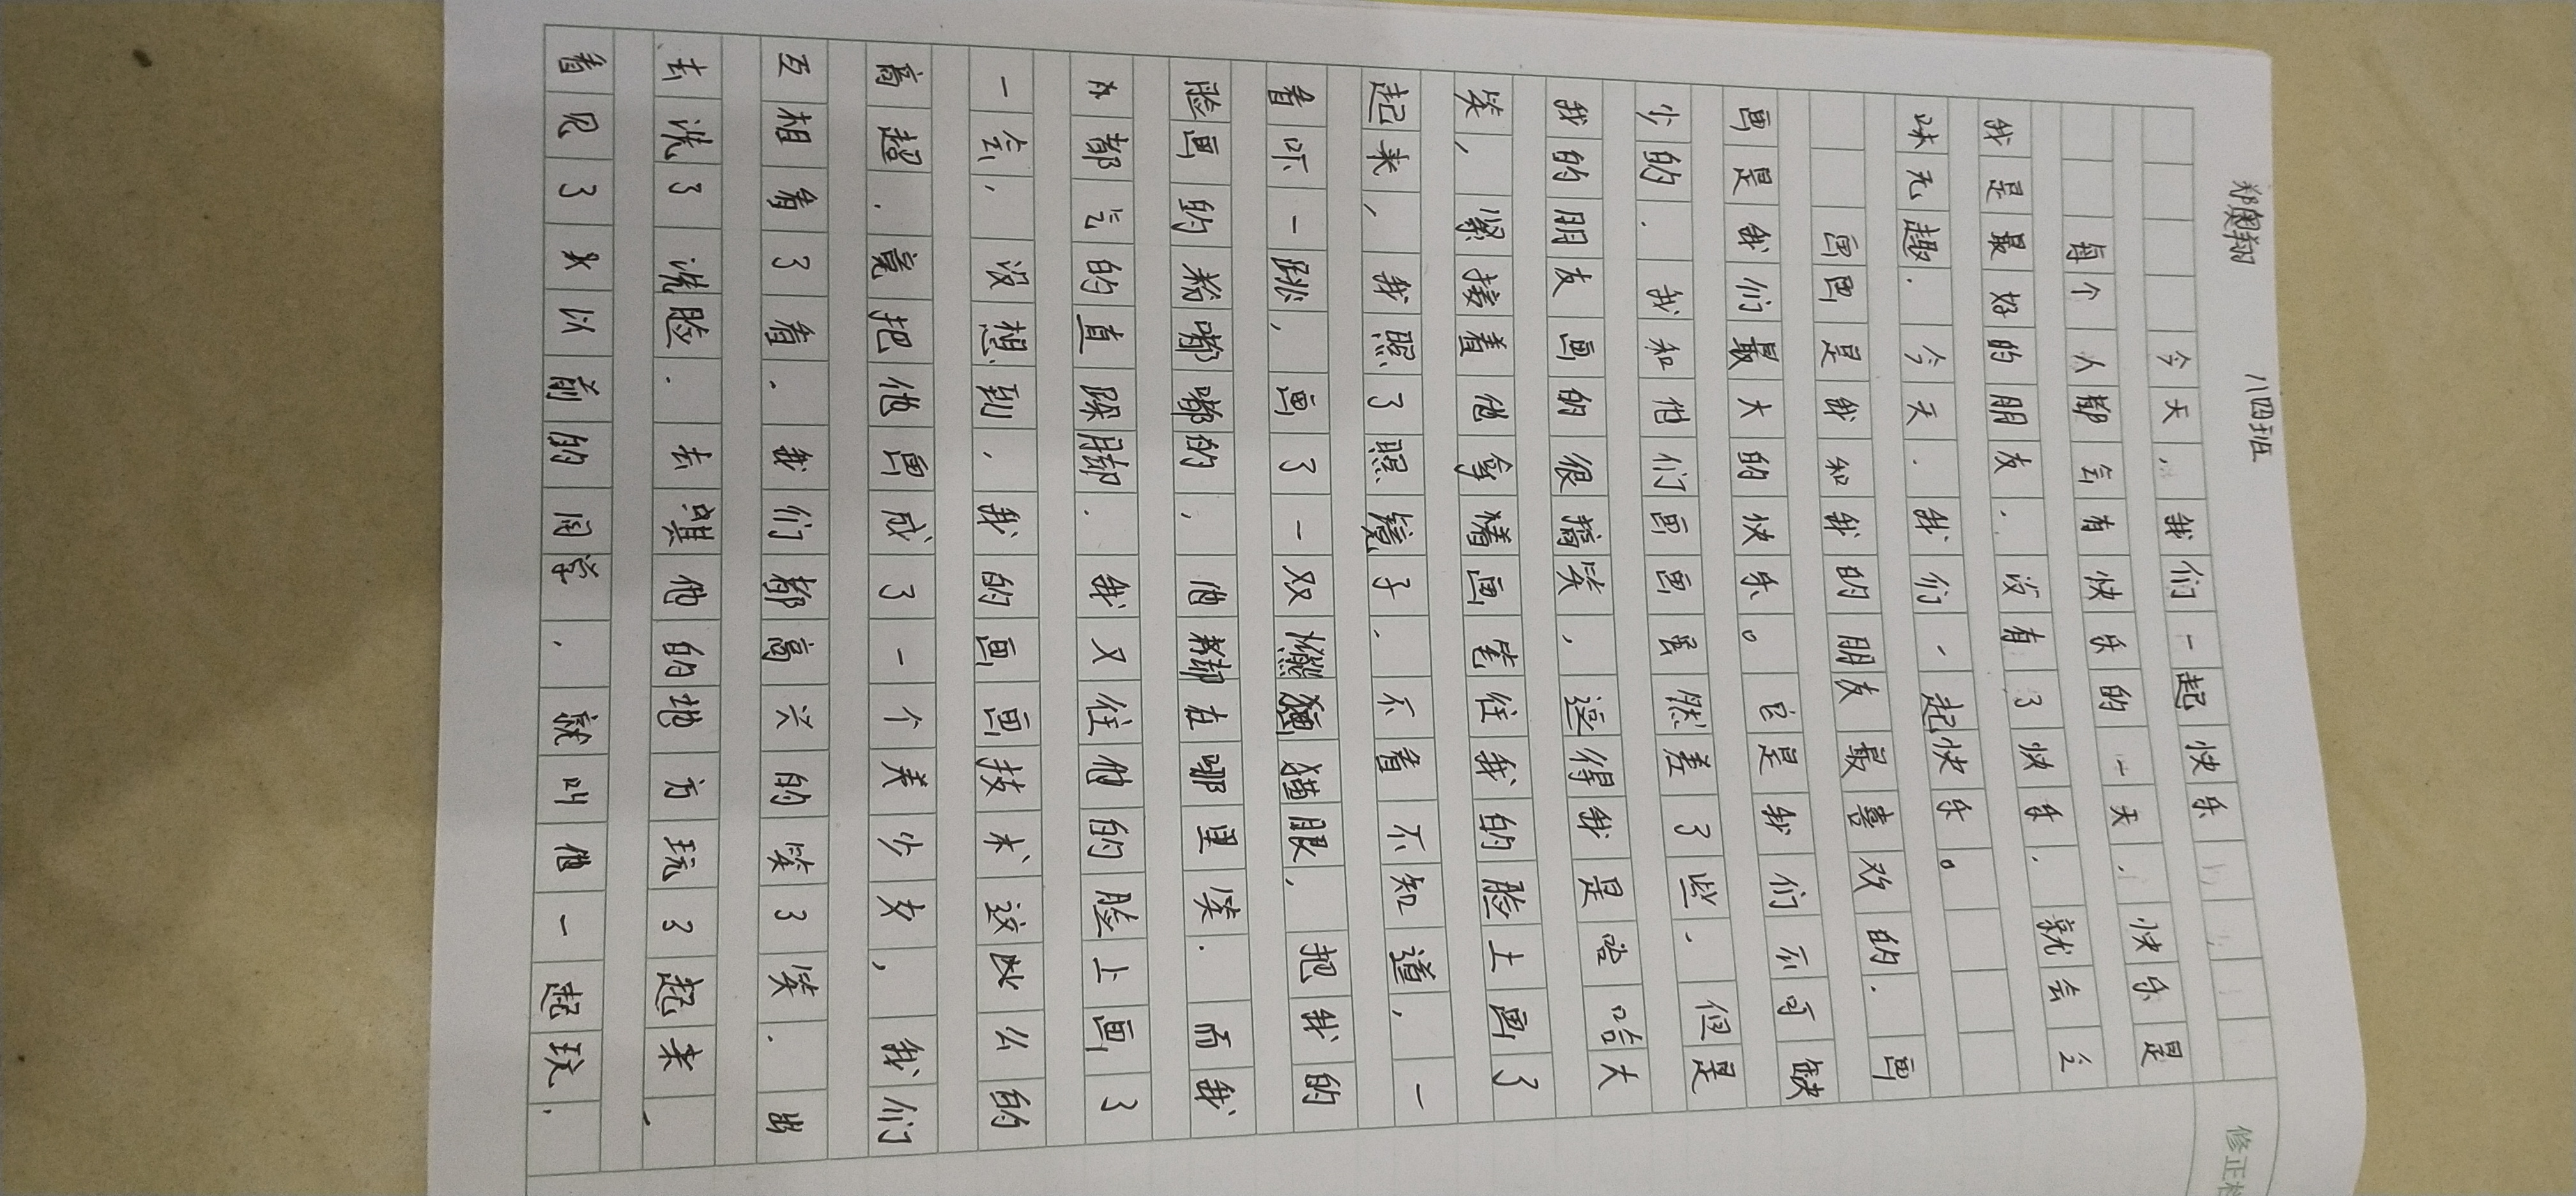 郑奥翔 八四班
今天，我们一起快乐
每个人都会有快乐的一天，快乐是
我是最好的朋友，没有了快乐，就会乏
味无趣，今天，我们一起快乐。
画画是我和我的朋友最喜欢的，画
画是我们最大的快乐。它是我们不可缺
少的，我和他们画画虽然差了些，但是
我的朋友画的很搞笑，逗得我是哈哈大
笑，紧接着他拿着画笔往我的脸上画了
起来，我照了照镜子，不看不知道，一
看吓一跳，画了一双熊猫眼，把我的
脸画的粉嘟嘟的，他都在哪里笑，而我
都气的直跺脚，我又往他的脸上画了
一会，没想到，我的画画技术这么的
高超，竟把他画成了一个美少女，我们
互相看了看，我们都高兴的笑了笑，出
去洗了洗脸，去其他的地方玩了起来，
看见了以前的同学，就叫他一起玩，
修正栏